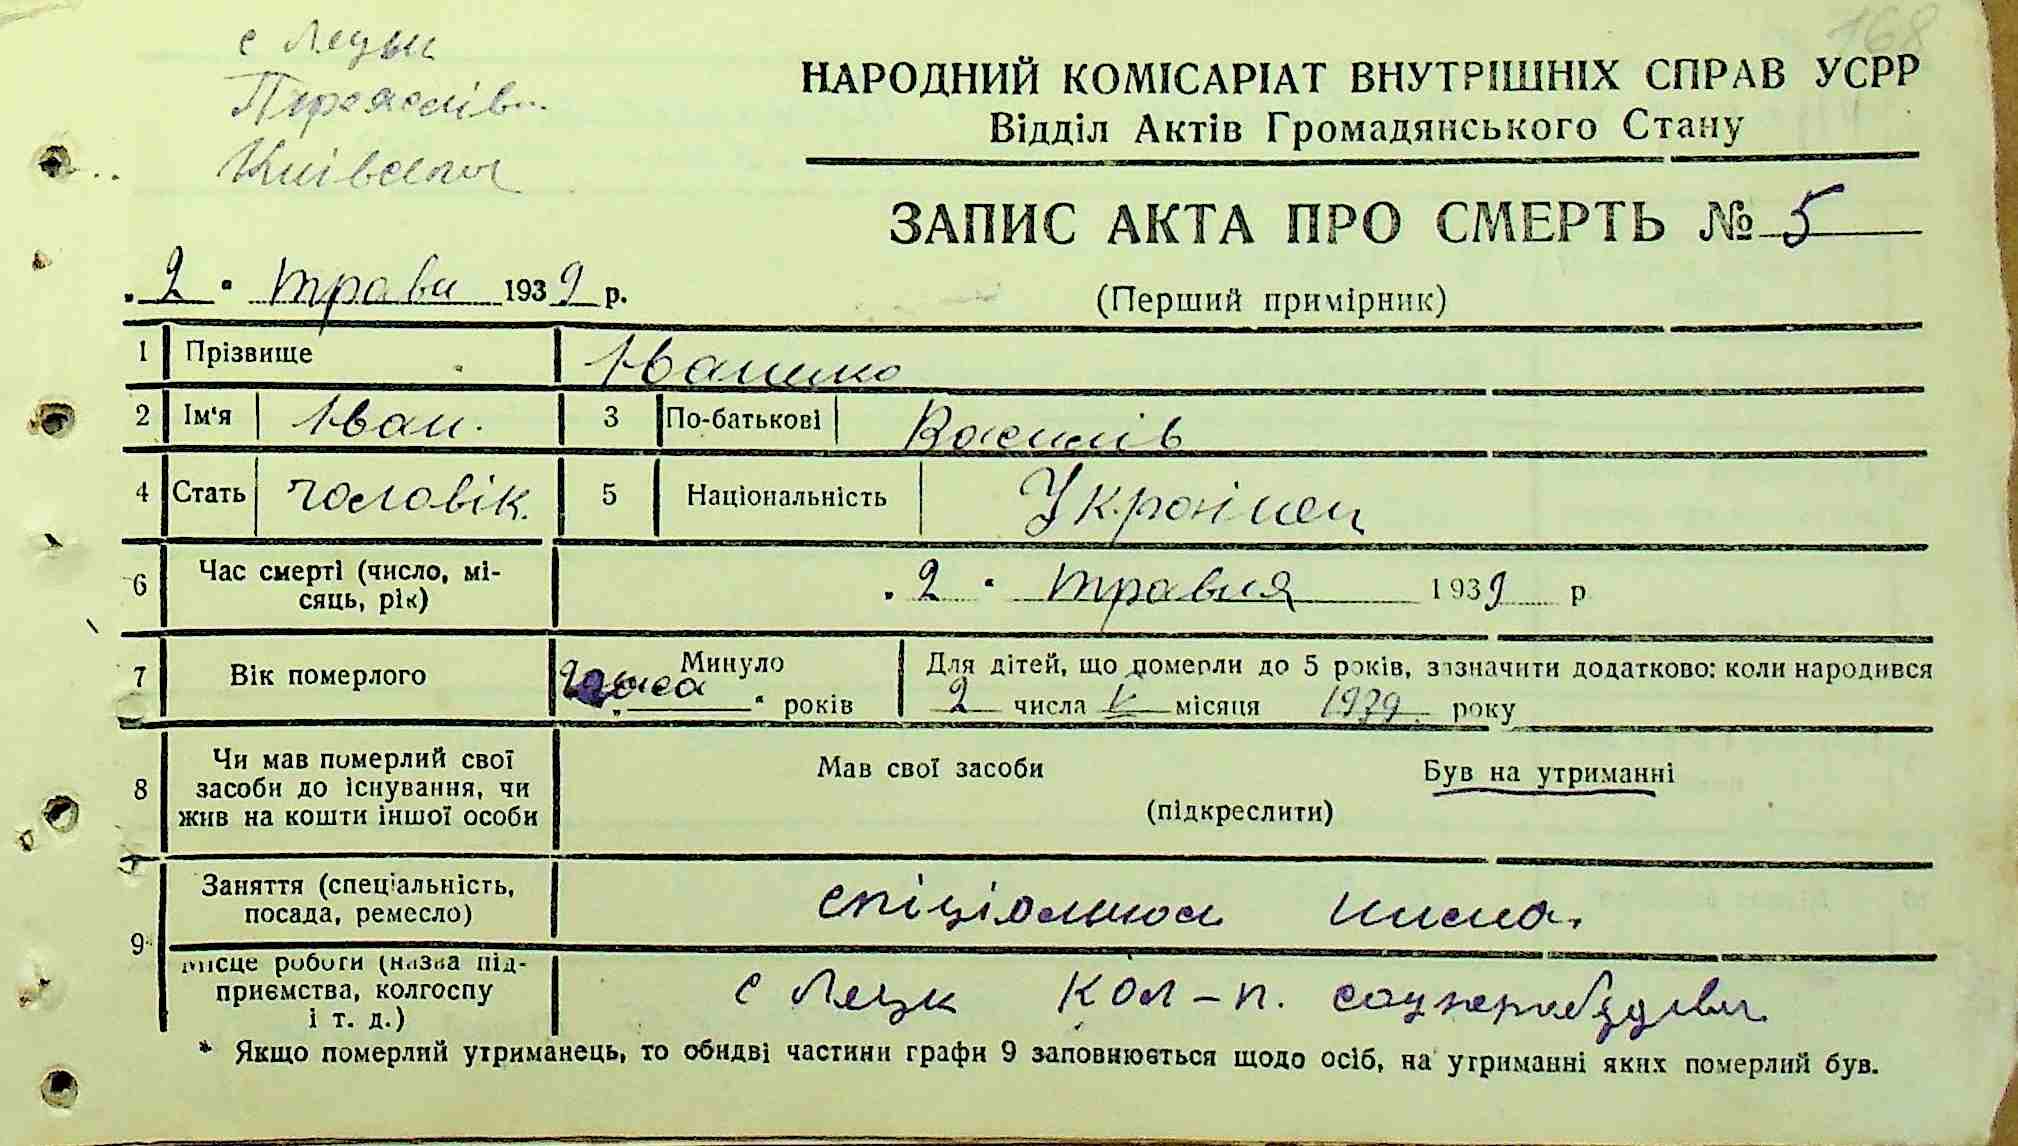 168
с Лецьки
Переяслів
Київської
НАРОДНИЙ КОМІСАРІАТ ВНУТРІШНІХ СПРАВ УСРР
Відділ Актів Громадянського Стану
ЗАПИС АКТА ПРО СМЕРТЬ № 5
„2" травн 1939 р.
(Перший примірник)
1 Прізвище Іваненко
2 Ім'я Іван. 3 По-батькові Василів
4 Стать чоловік. 5 Національність Українец
6 Час смерті (число, місяць, рік) „2" травня 1939 р
7 Вік померлого Минуло „ " років Для дітей, що померли до 5 років, зазначити додатково: коли народився
2 числа V місяця 1939 року
8 Чи мав померлий свої засоби до існування, чи жив на кошти іншої особи Мав свої засоби Був на утриманні
(підкреслити)
9 Заняття (спеціальність, посада, ремесло) спіціольност нима.
Місце роботи (назва підприємства, колгоспу і т. д.) с Лецк кол-п. соцперебудови
* Якщо померлий утриманець, то обидві частини графи 9 заповнюється щодо осіб, на утриманні яких померлий був.